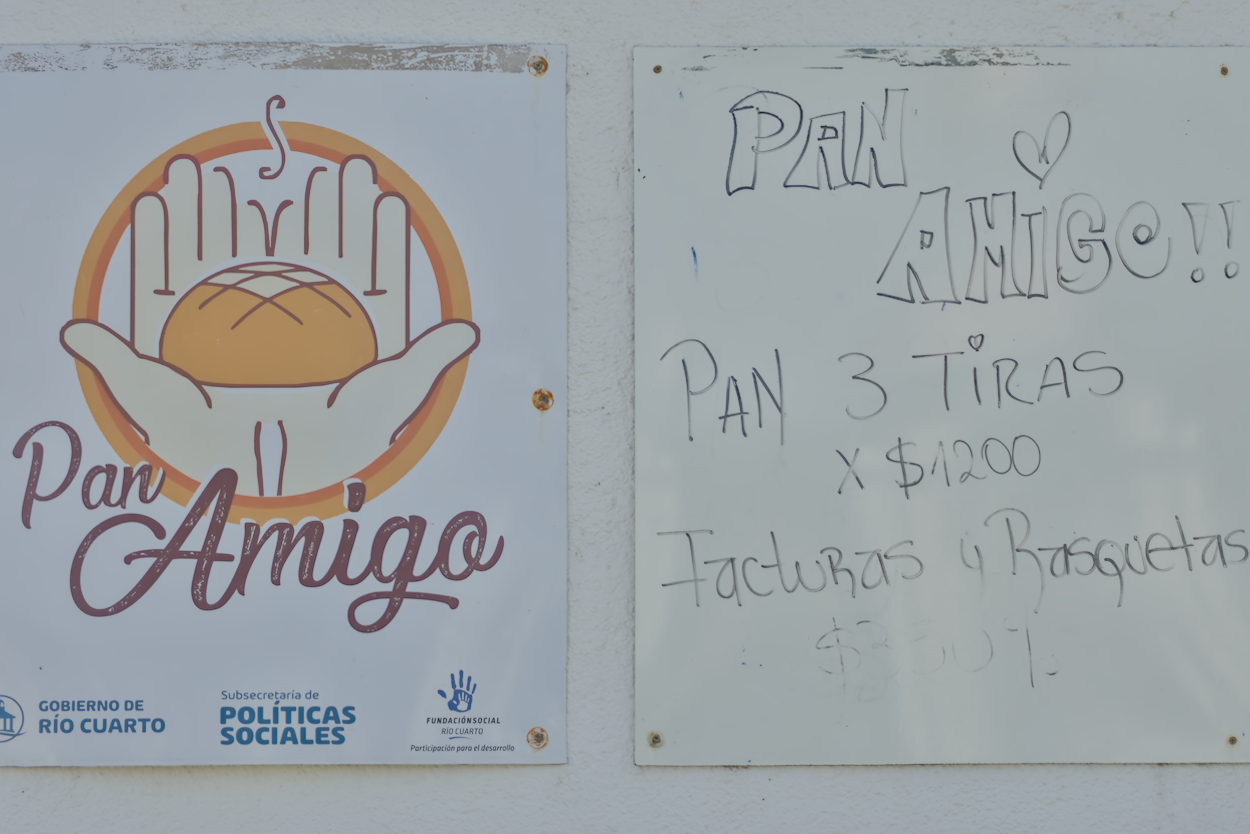 Pan
Amigo
GOBIERNO DE
RÍO CUARTO
Subsecretaría de
POLÍTICAS
SOCIALES
FUNDACIÓN SOCIAL
RÍO CUARTO
Participación para el desarrollo
PAN
AMiGO!!
PAN 3 TiRAS
X $1200
Facturas y Rasquetas